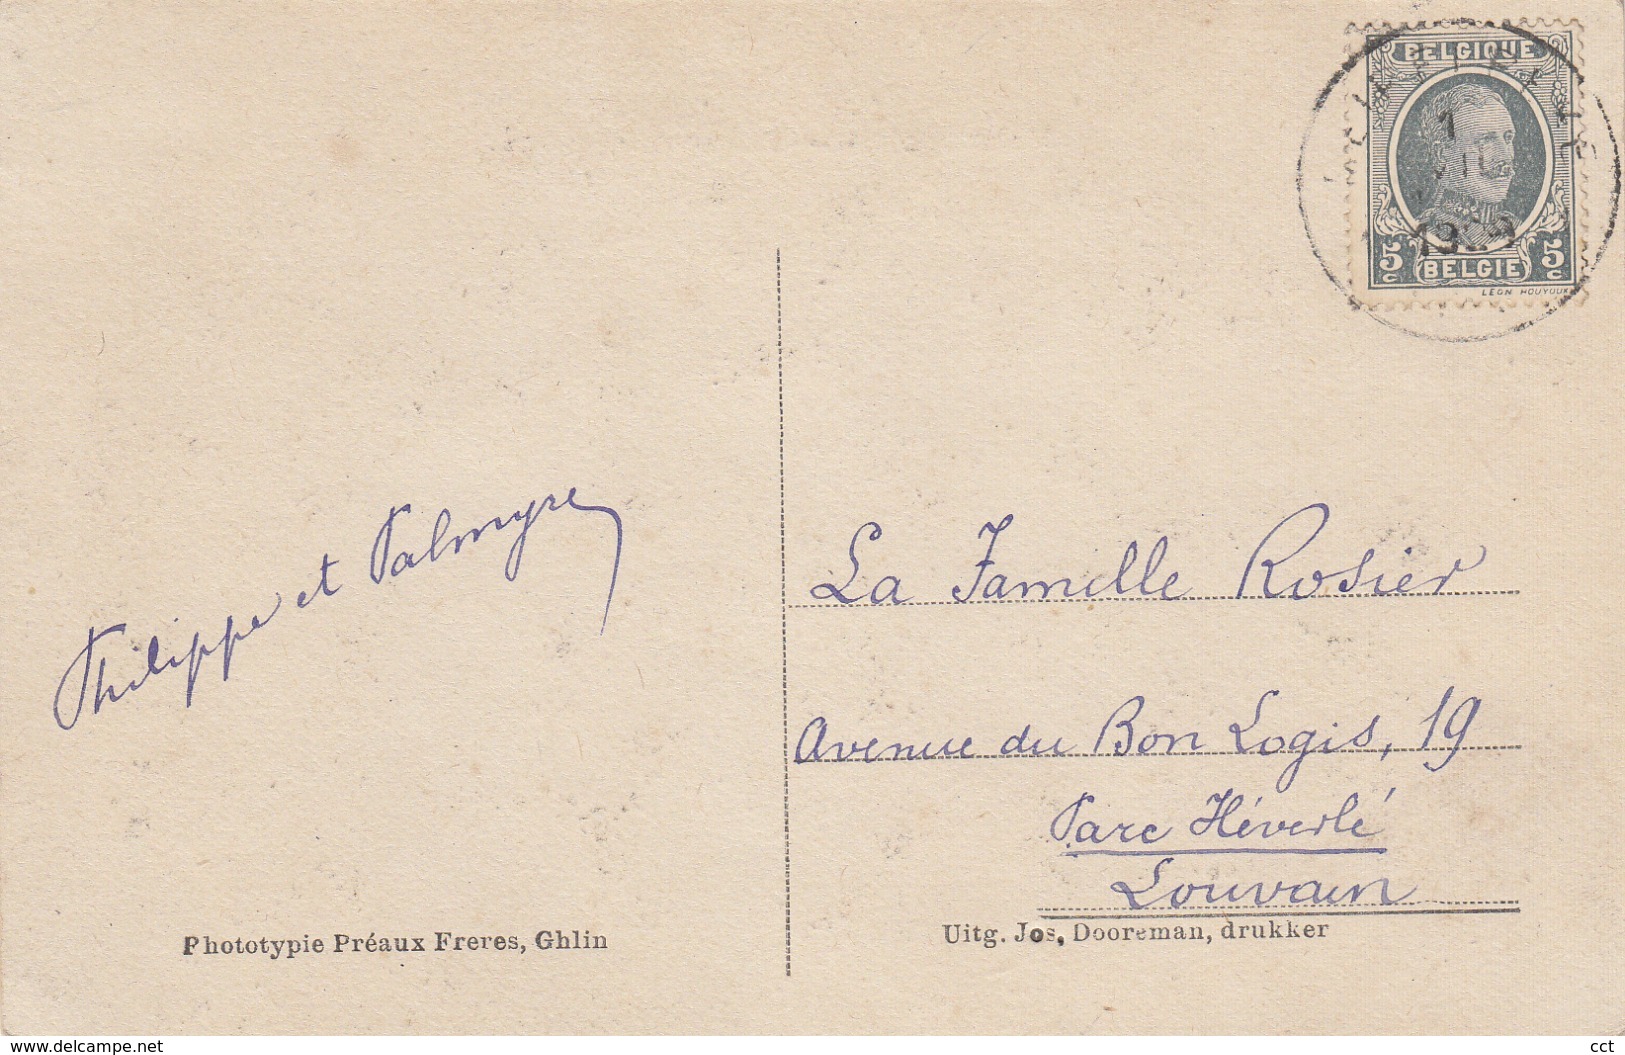 BELGIQUE
1
5 c BELGIE 5 c
LEON HOUYOUX
Philippe et Palmyre
La Famille Rosier
Avenue du Bon Logis, 19
Parc Héverlé
Louvain
Phototypie Préaux Freres, Ghlin
Uitg. Jos, Dooreman, drukker
www.delcampe.net
cct